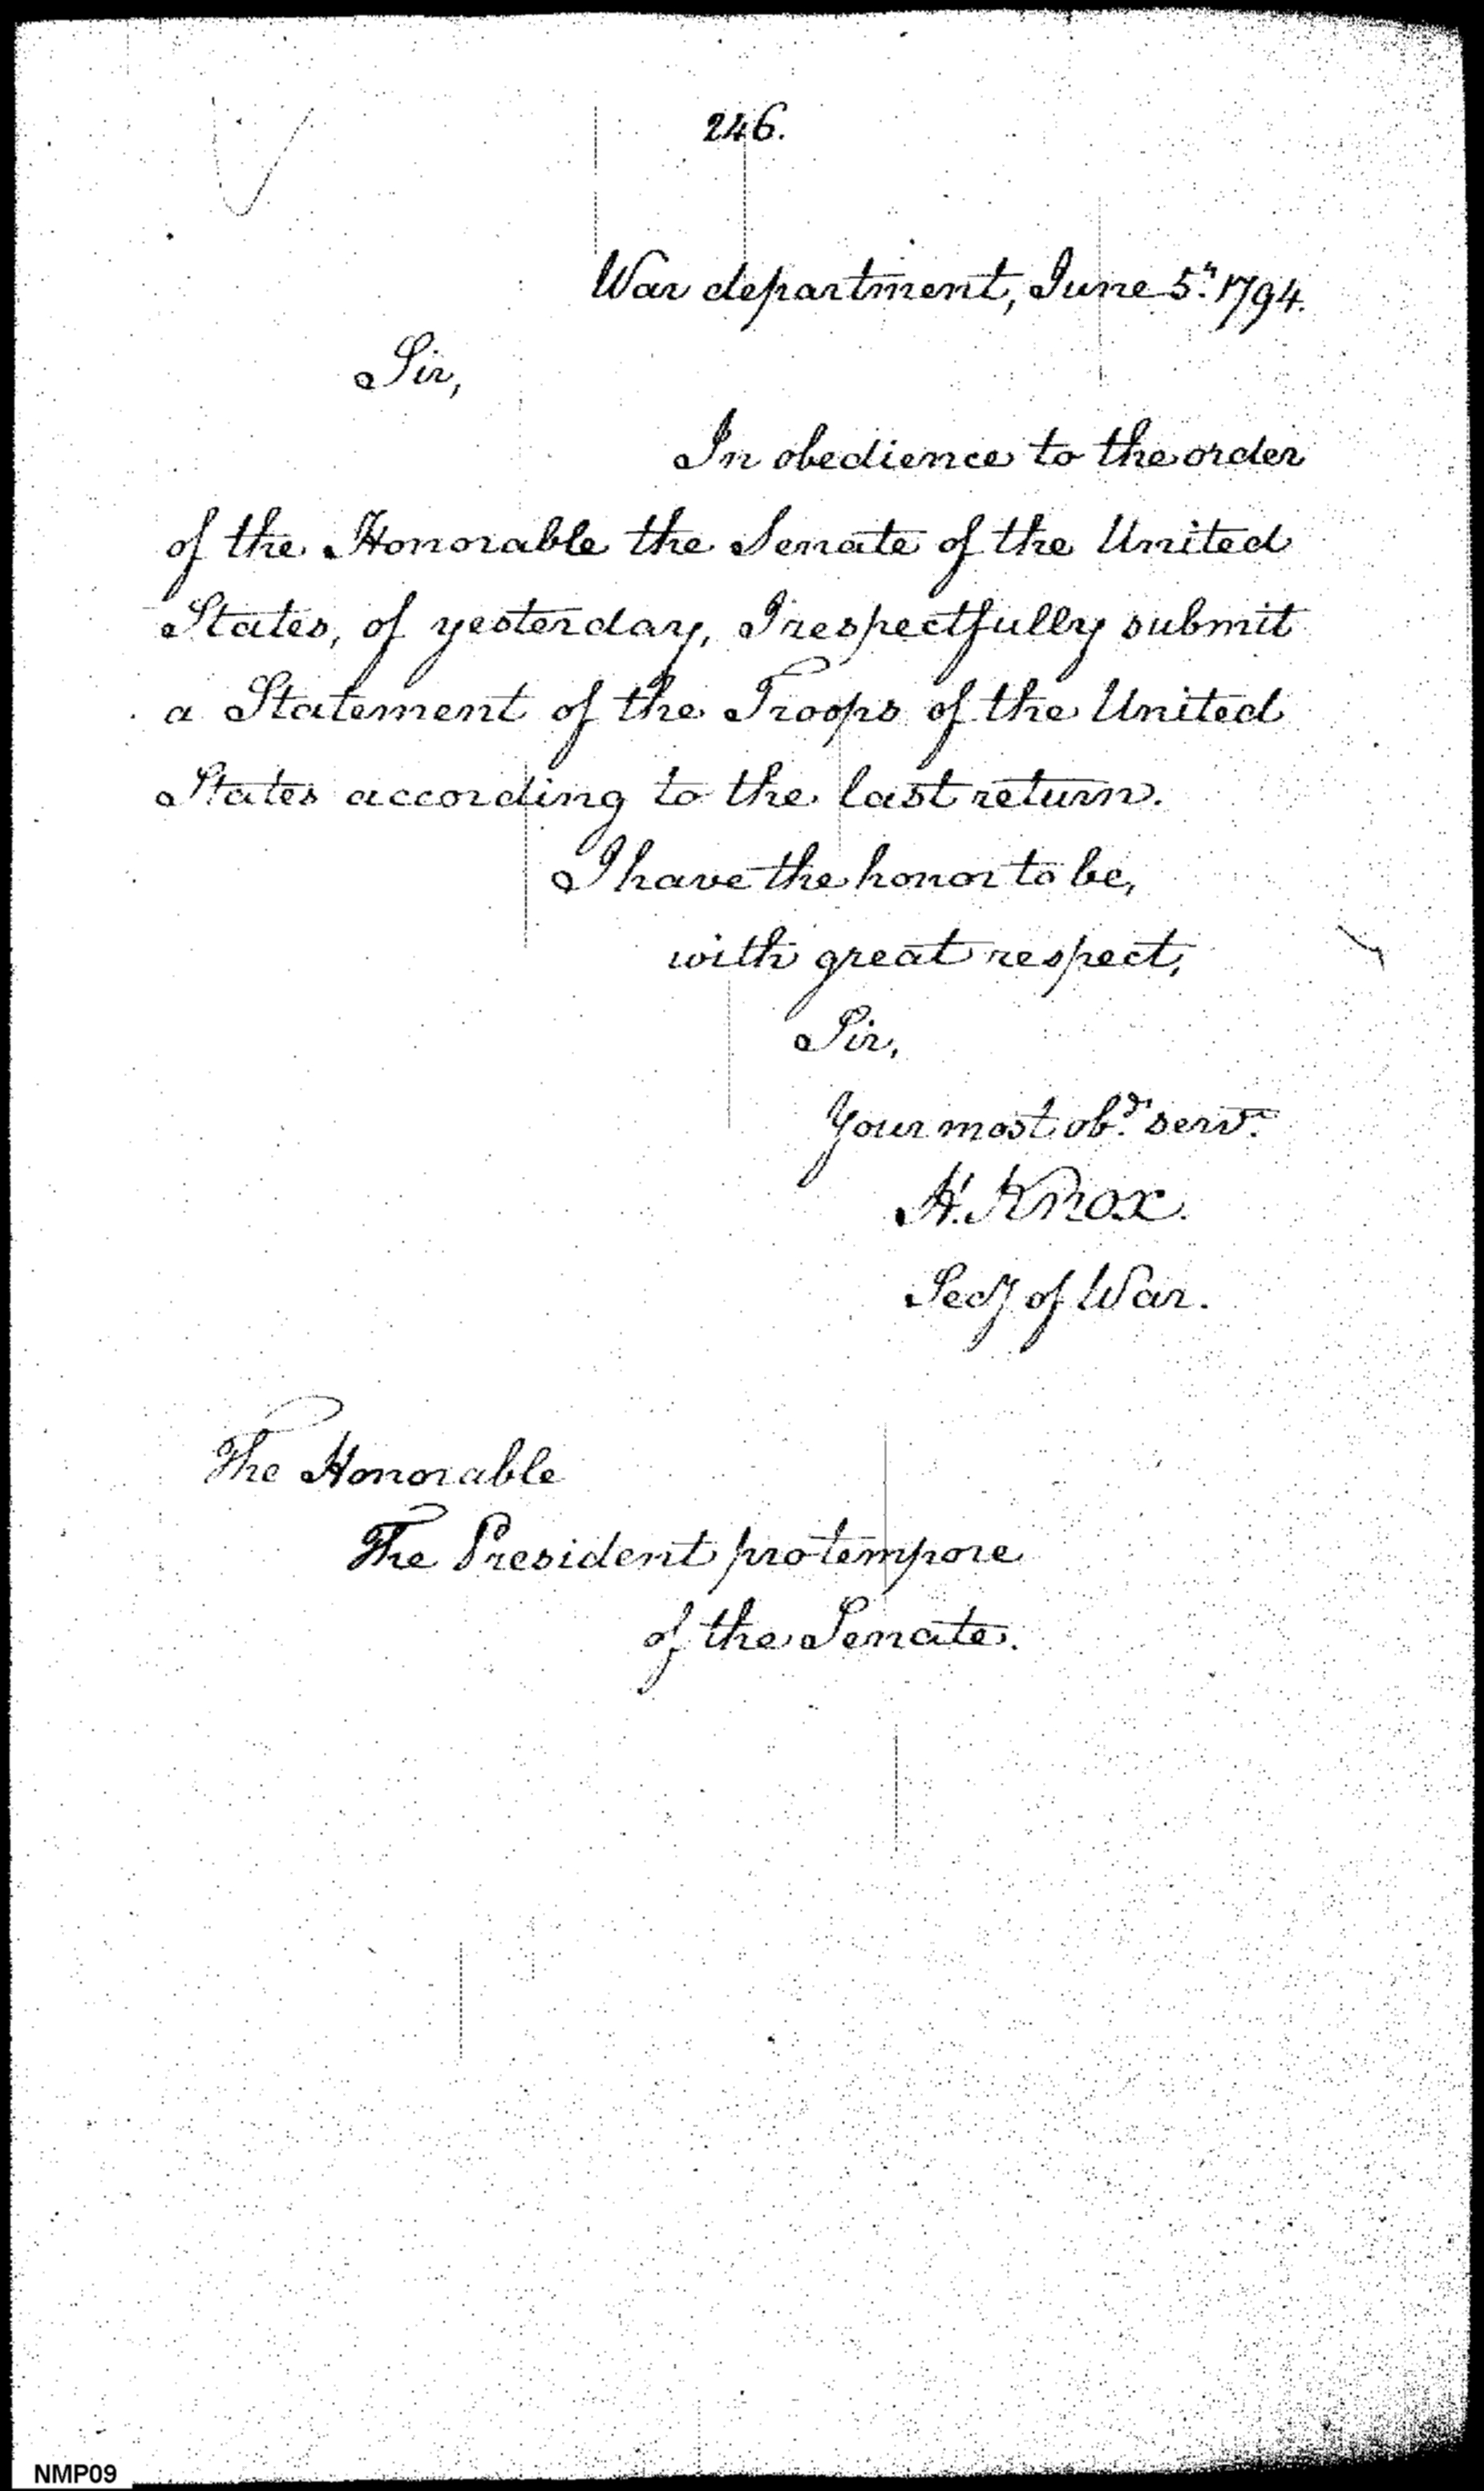 246.
War department, June 5th. 1794.
Sir,
In obedience to the order
of the Honorable the Senate of the United
States, of yesterday, I respectfully submit
a Statement of the Troops of the United
States according to the last return.
I have the honor to be,
with great respect,
Sir,
Your most obt. servt.
H. Knox.
Secy of War.
The Honorable
The President pro tempore
of the Senate.
NMP09